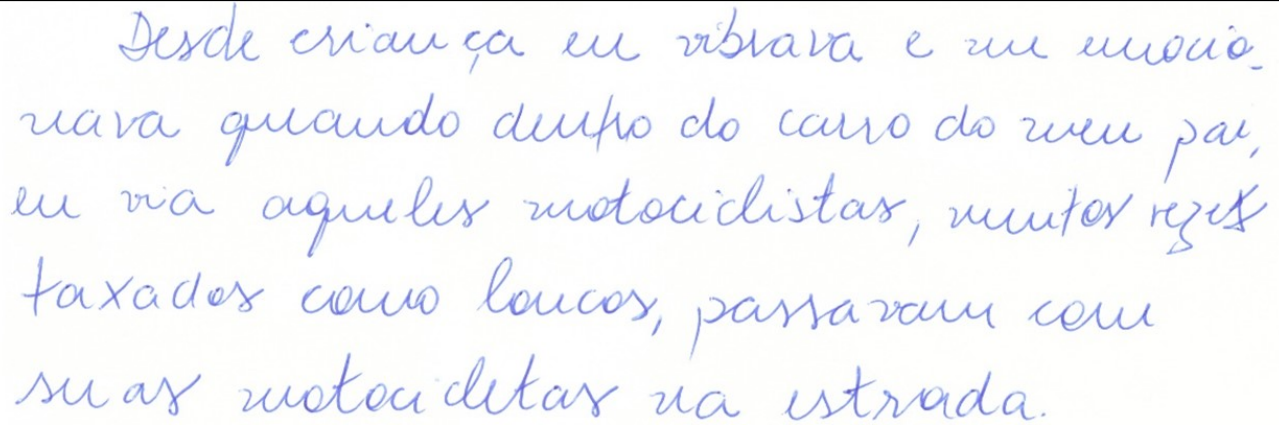 Desde criança eu vibrava e me emocio-
nava quando dentro do carro do meu pai,
eu via aqueles motociclistas, muitos vezes
taxados como loucos, passavam com
suas motocicletas na estrada.